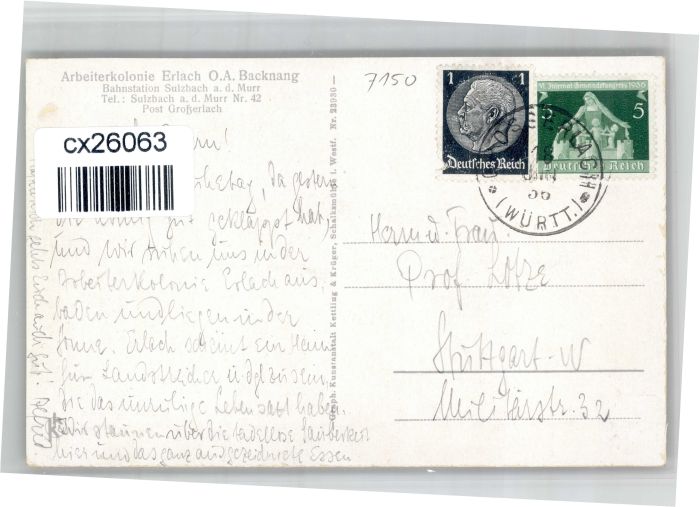 Arbeiterkolonie Erlach O.A. Backnang
Bahnstation Sulzbach a. d. Murr
Tel.: Sulzbach a. d. Murr Nr. 42
Post Großerlach
cx26063
7150
1 1
Deutsches Reich
VI. Internat. Gemeindekongress 1936
5 5
Deutsches Reich
GROSSERLACH
36
(WÜRTT.)
Ruhetag, da gestern
geklappt hat,
und wir ruhen uns in der
Arbeiterkolonie Erlach aus,
baden und liegen in der
Sonne. Erlach scheint ein Heim
für Landstreicher u dgl zu sein
die das unruhige Leben satt haben.
Wir staunen über die tadellose Sauberkeit
hier und das ganz ausgezeichnete Essen
Graph. Kunstanstalt Kettling & Krüger, Schalksmühle i. Westf. Nr. 23930
Herrn u. Frau
Prof Lotze
Stuttgart-W
Militärstr. 32